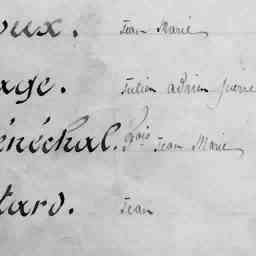 oux. Jean Marie
age. Julien adrien pierre
énéchal. frçois Jean Marie
tard. Jean